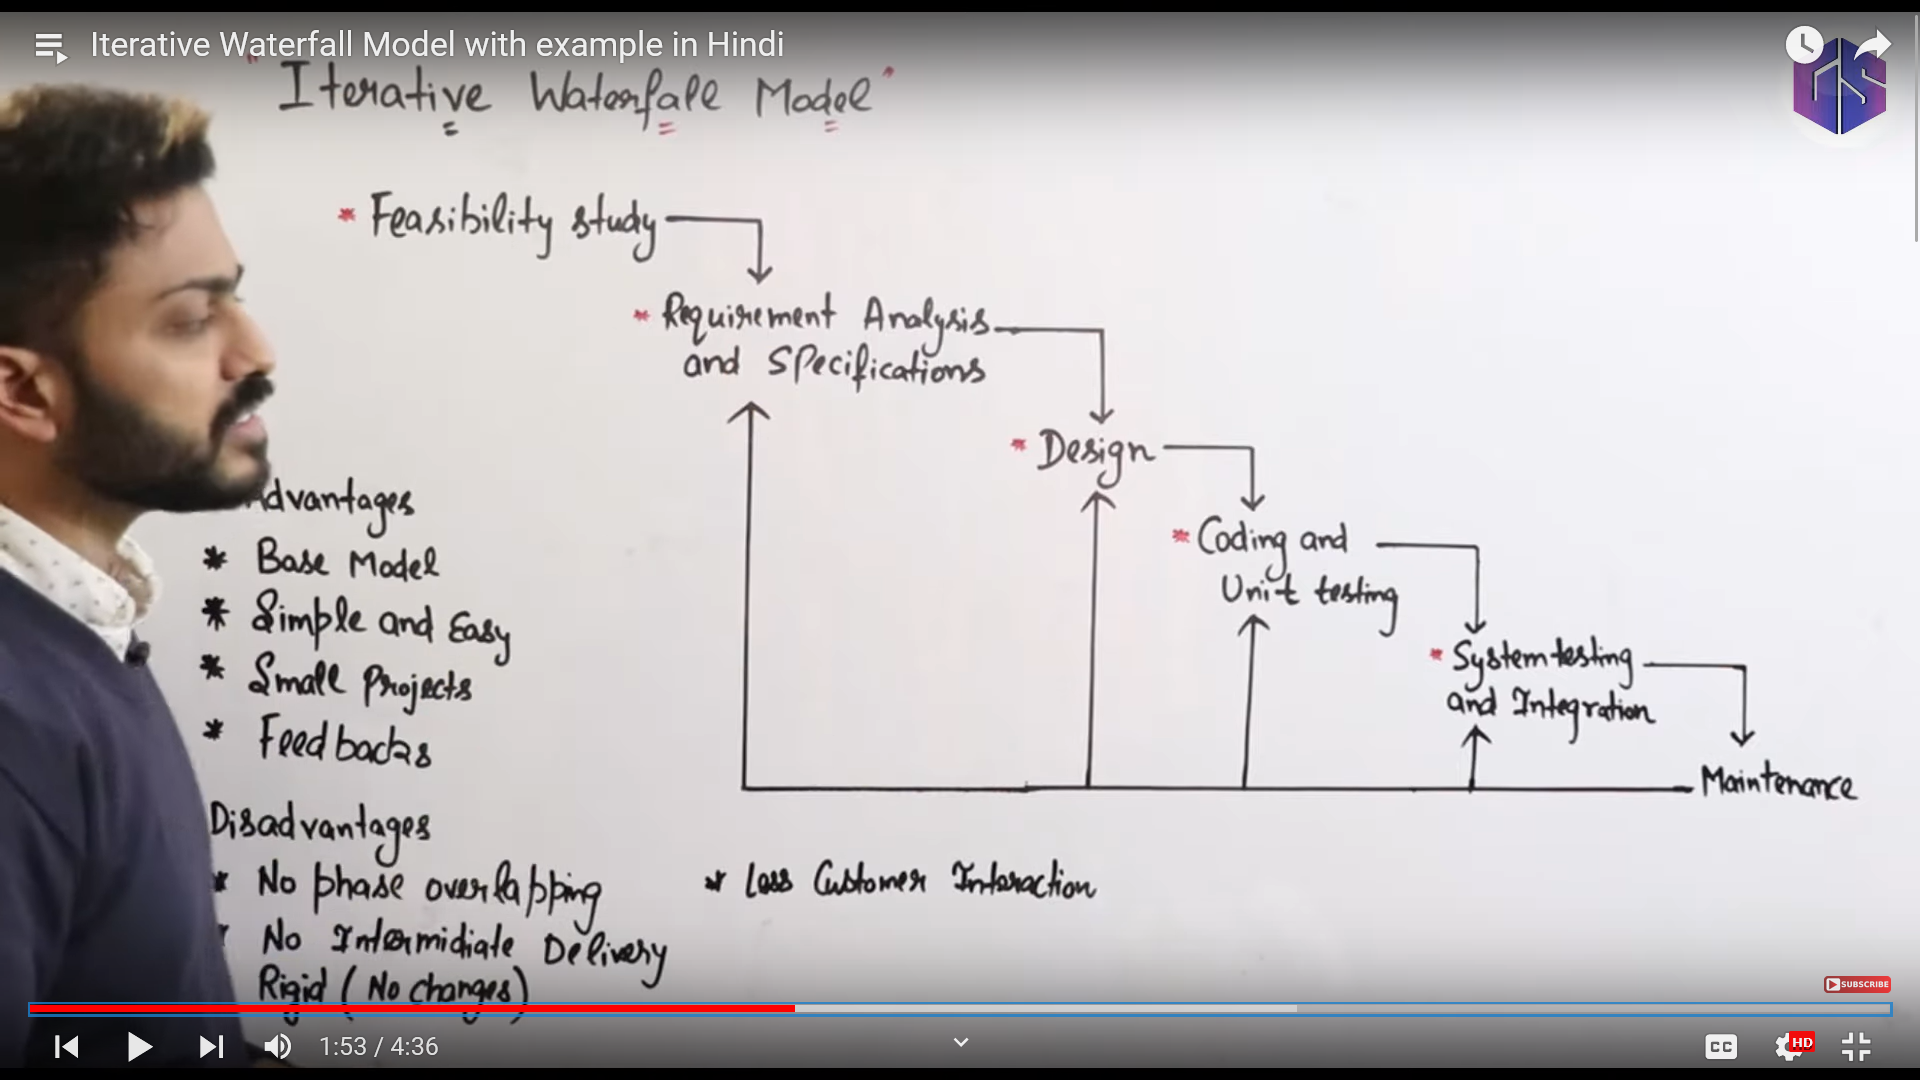 Iterative Waterfall Model with example in Hindi
"Iterative Waterfall Model"
* Feasibility study
* Requirement Analysis
and Specifications
* Design
* Coding and
Unit testing
* System testing
and Integration
Maintenance
Advantages
* Base Model
* Simple and Easy
* Small Projects
* Feedbacks
Disadvantages
* No phase overlapping
* Less Customer Interaction
* No Intermidiate Delivery
Rigid (No changes)
SUBSCRIBE
1:53 / 4:36
CC
HD